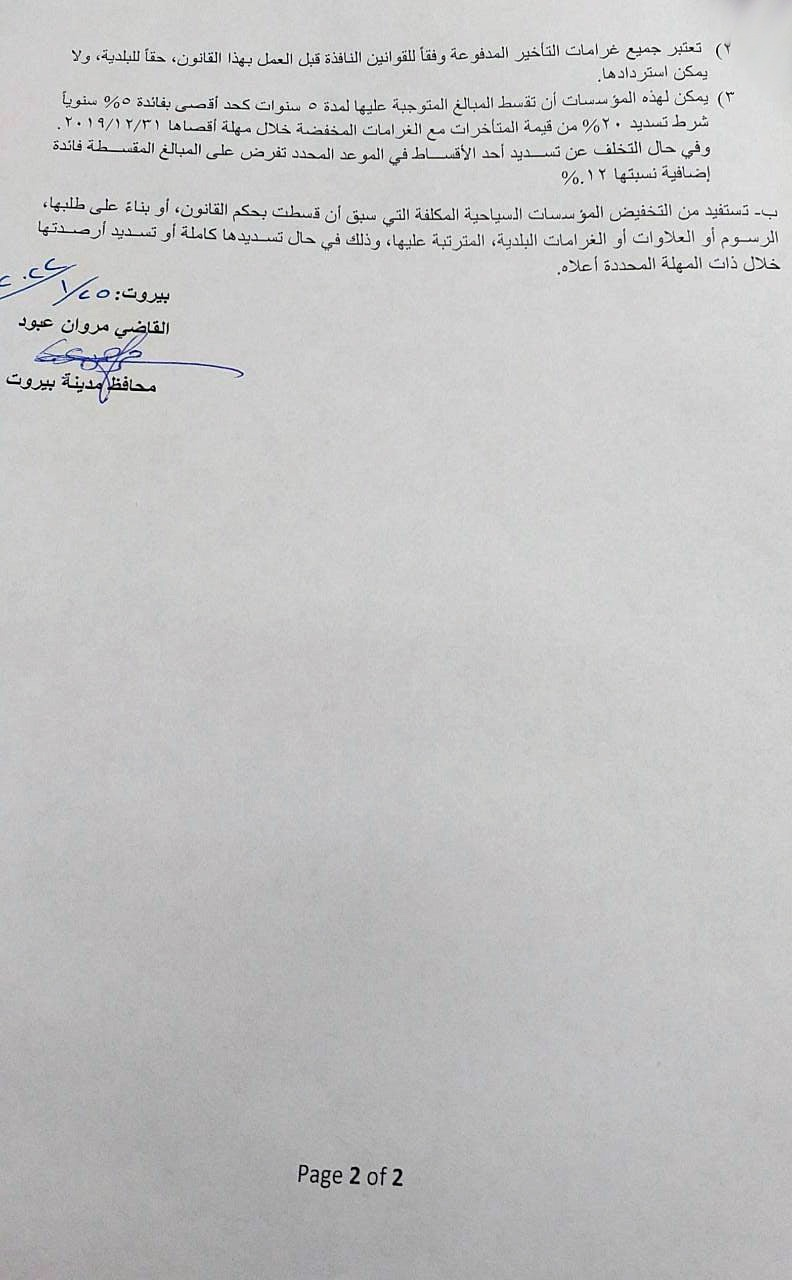 ٢) تعتبر جميع غرامات التأخير المدفوعة وفقاً للقوانين النافذة قبل العمل بهذا القانون، حقاً للبلدية، ولا
يمكن استردادها.
٣) يمكن لهذه المؤسسات أن تقسط المبالغ المتوجبة عليها لمدة ٥ سنوات كحد أقصى بفائدة ٥% سنوياً
شرط تسديد ٢٠% من قيمة المتأخرات مع الغرامات المخفضة خلال مهلة أقصاها ٢٠١٩/١٢/٣١.
وفي حال التخلف عن تسديد أحد الأقساط في الموعد المحدد تفرض على المبالغ المقسطة فائدة
إضافية نسبتها ١٢.%
ب- تستفيد من التخفيض المؤسسات السياحية المكلفة التي سبق أن قسطت بحكم القانون، أو بناءً على طلبها،
الرسوم أو العلاوات أو الغرامات البلدية، المترتبة عليها، وذلك في حال تسديدها كاملة أو تسديد أرصدتها
خلال ذات المهلة المحددة أعلاه.
بيروت: ٢٥/١/
القاضي مروان عبود
محافظ مدينة بيروت
Page 2 of 2